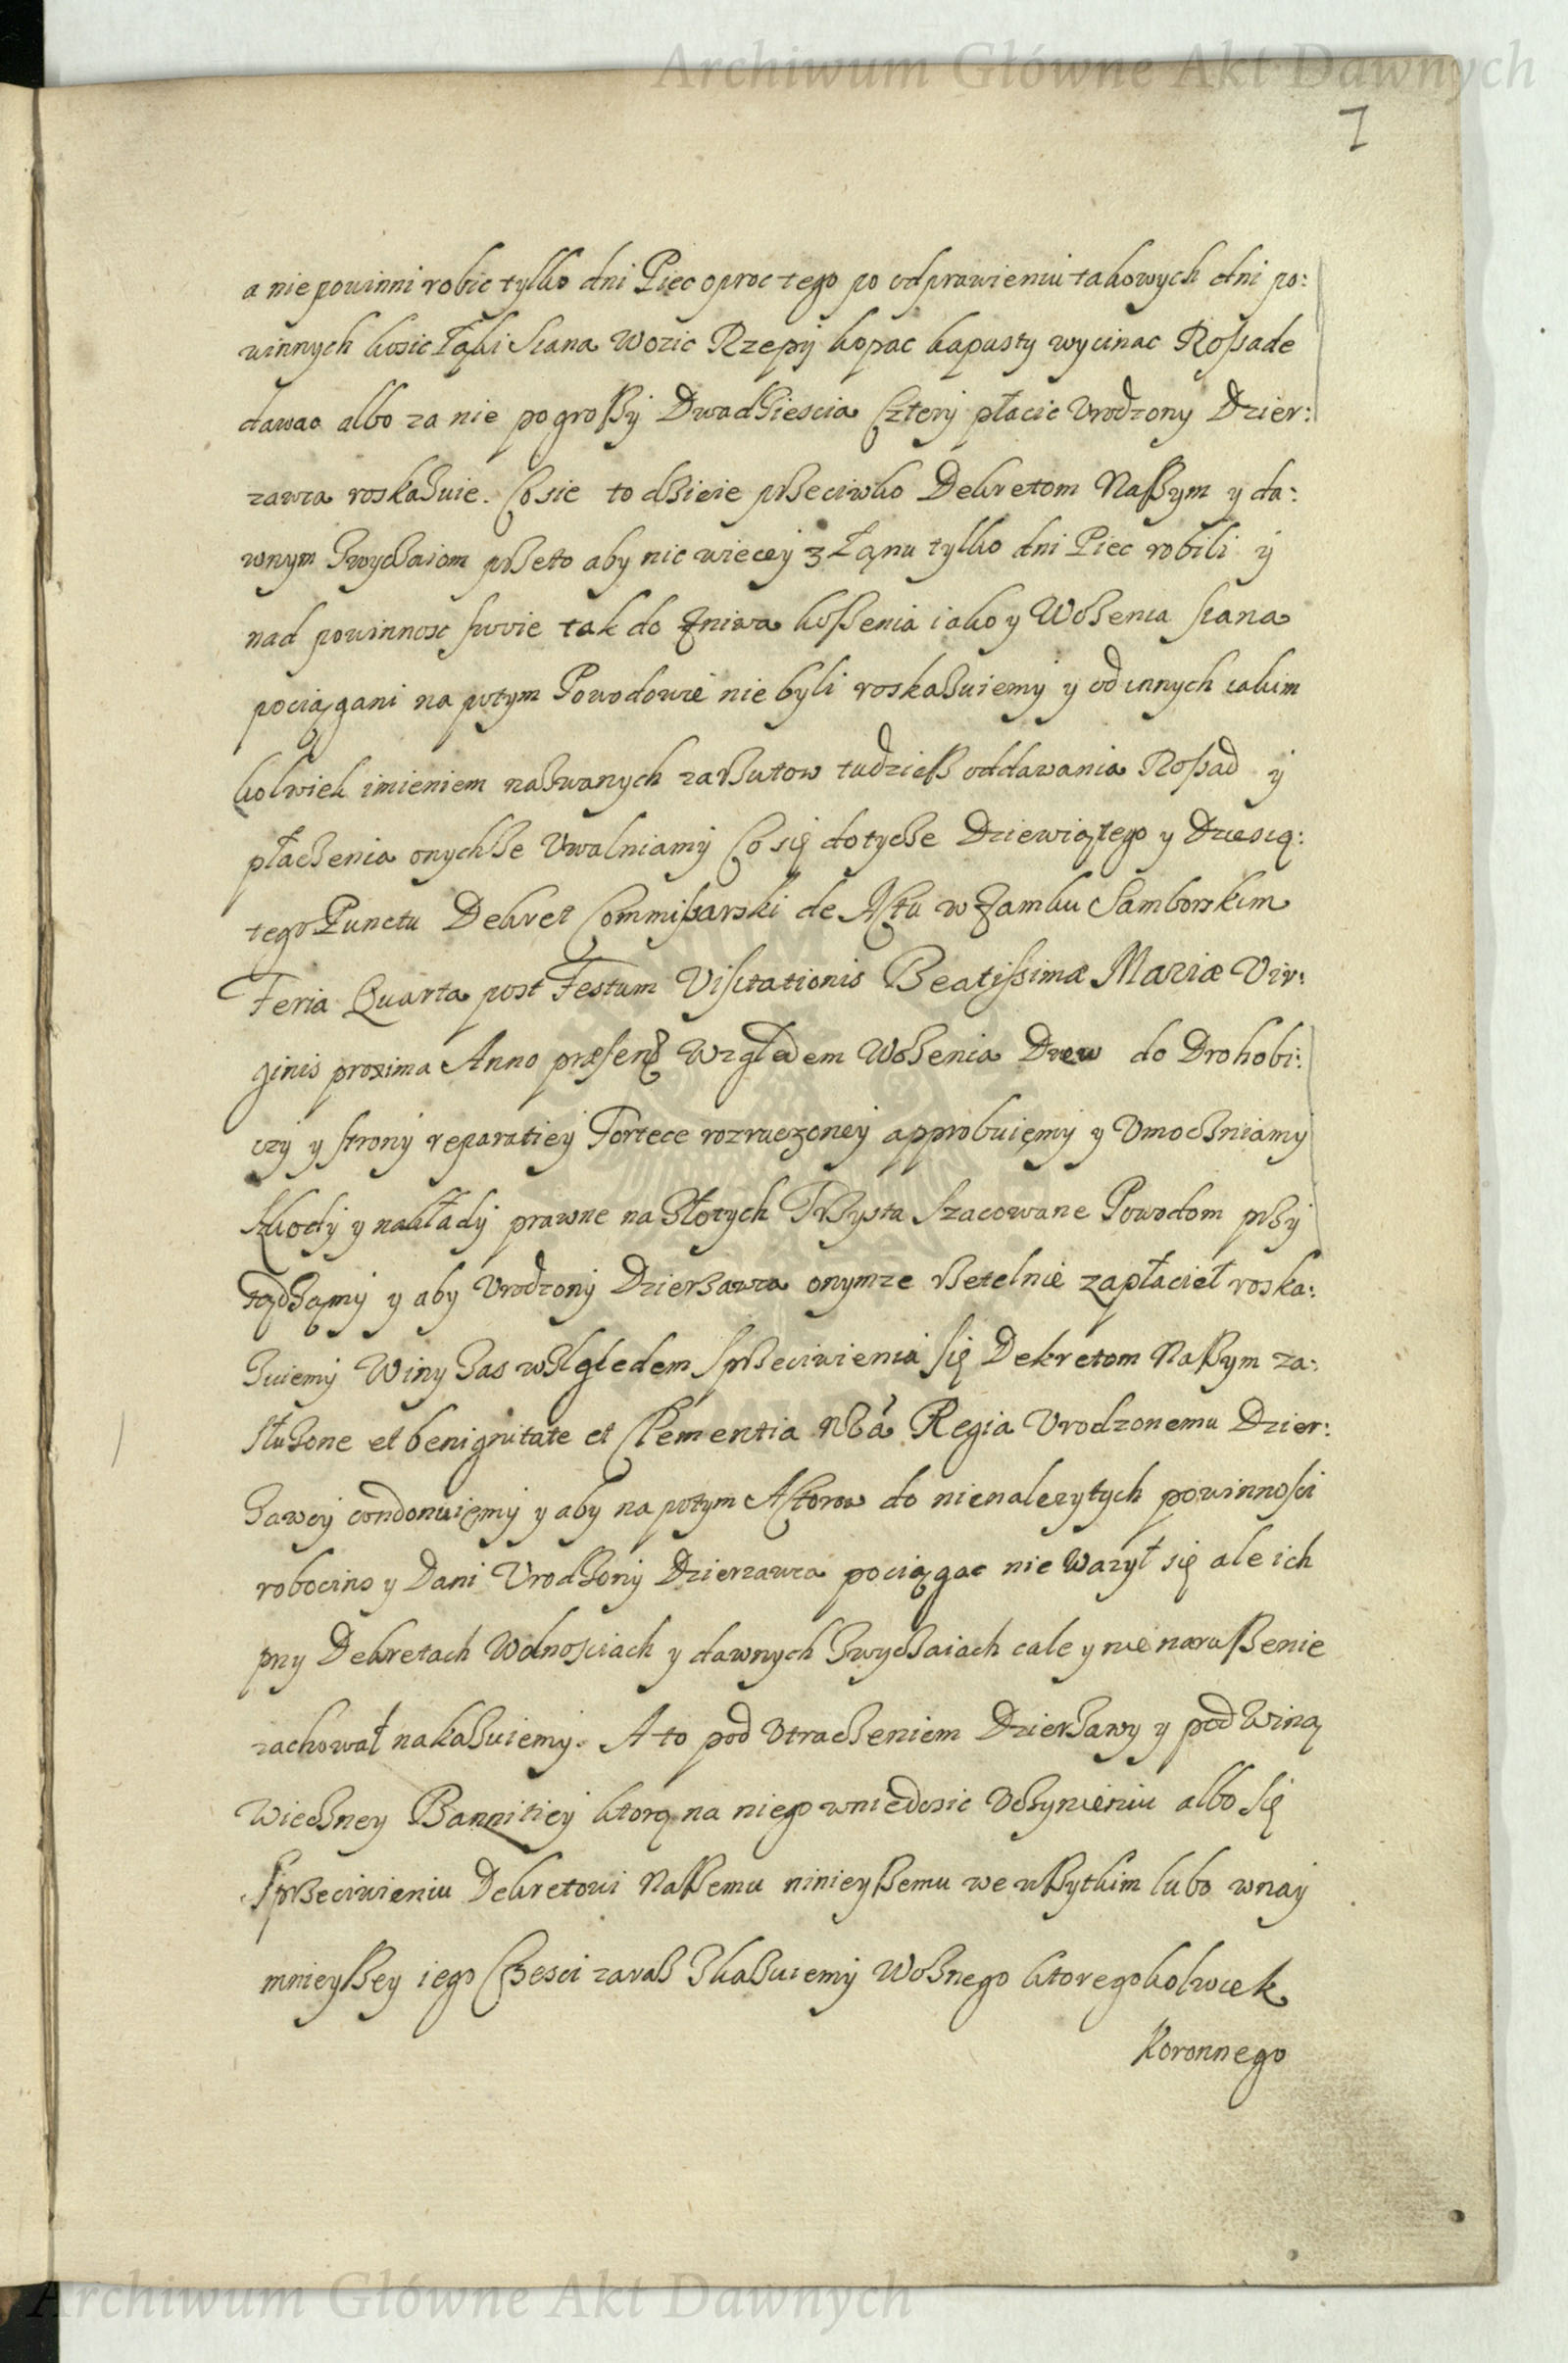 Archiwum Główne Akt Dawnych
7
a nie powinni robic tylko dni Piec oproc tego po odprawieniu takowych dni po:
winnych kosic Łąki Siana Wozic Rzepy kopac kapusty wycinac Rossade
dawac albo za nie po groszy Dwadziescia Cztery płacic Urodzony Dzier:
zawca roskazuie. Co sie to dzieie przeciwko Dekretom Naszym y da:
wnym Zwyczaiom przeto aby nic wiecey z Łanu tylko dni Piec robili y
nad powinnosc swoie tak do Zniwa koszenia iako y Wozenia siana
pociągani na potym Powodowie nie byli roskazuiemy y od innych iakim
kolwiek imieniem nazwanych zarzutow tudziesz oddawania Rossad y
płacenia onychze Uwalniamy Co się dotycze Dziewiątego y Dziesią:
tego Punctu Dekret Commissarski de Actu w Zamku Samborskim
Feria Quarta post Festum Visitationis Beatissimæ Mariæ Vir:
ginis proxima Anno præsenti Względem Wozenia Drew do Drohobi:
czy y strony reparatiey Fortece rozruczoney approbuięmy y Umocniamy
Szkody y nakłady prawne na Złotych Trzysta Szacowane Powodom przy
sądzamy y aby Urodzony Dzierzawca onymze rzetelnie zapłacieł roska:
zuiemy Winy Zas względem Sprzeciwienia się Dekretom Naszym za:
słuzone et benignitate et Clementia Nra Regia Urodzonemu Dzier:
zawcy condonuięmy y aby na potym Actorow do nienalezytych powinnosci
robocizno y Dani Urodzony Dzierzawca pociągac nie Wazył się ale ich
przy Dekretach Wolnosciach y dawnych Zwyczaiach cale y nienaruszenie
zachował nakazuiemy. A to pod Utraceniem Dzierzawy y pod Winą
Wieczney Bannitiey ktorą na niego w niedosic Uczynieniu albo się
Sprzeciwieniu Dekretowi Naszemu ninieyszemu we wszytkim lubo w nay
mnieyszey iego Częsci zaraz Skazuiemy Woznego ktoregokolwiek
Koronnego
Archiwum Główne Akt Dawnych